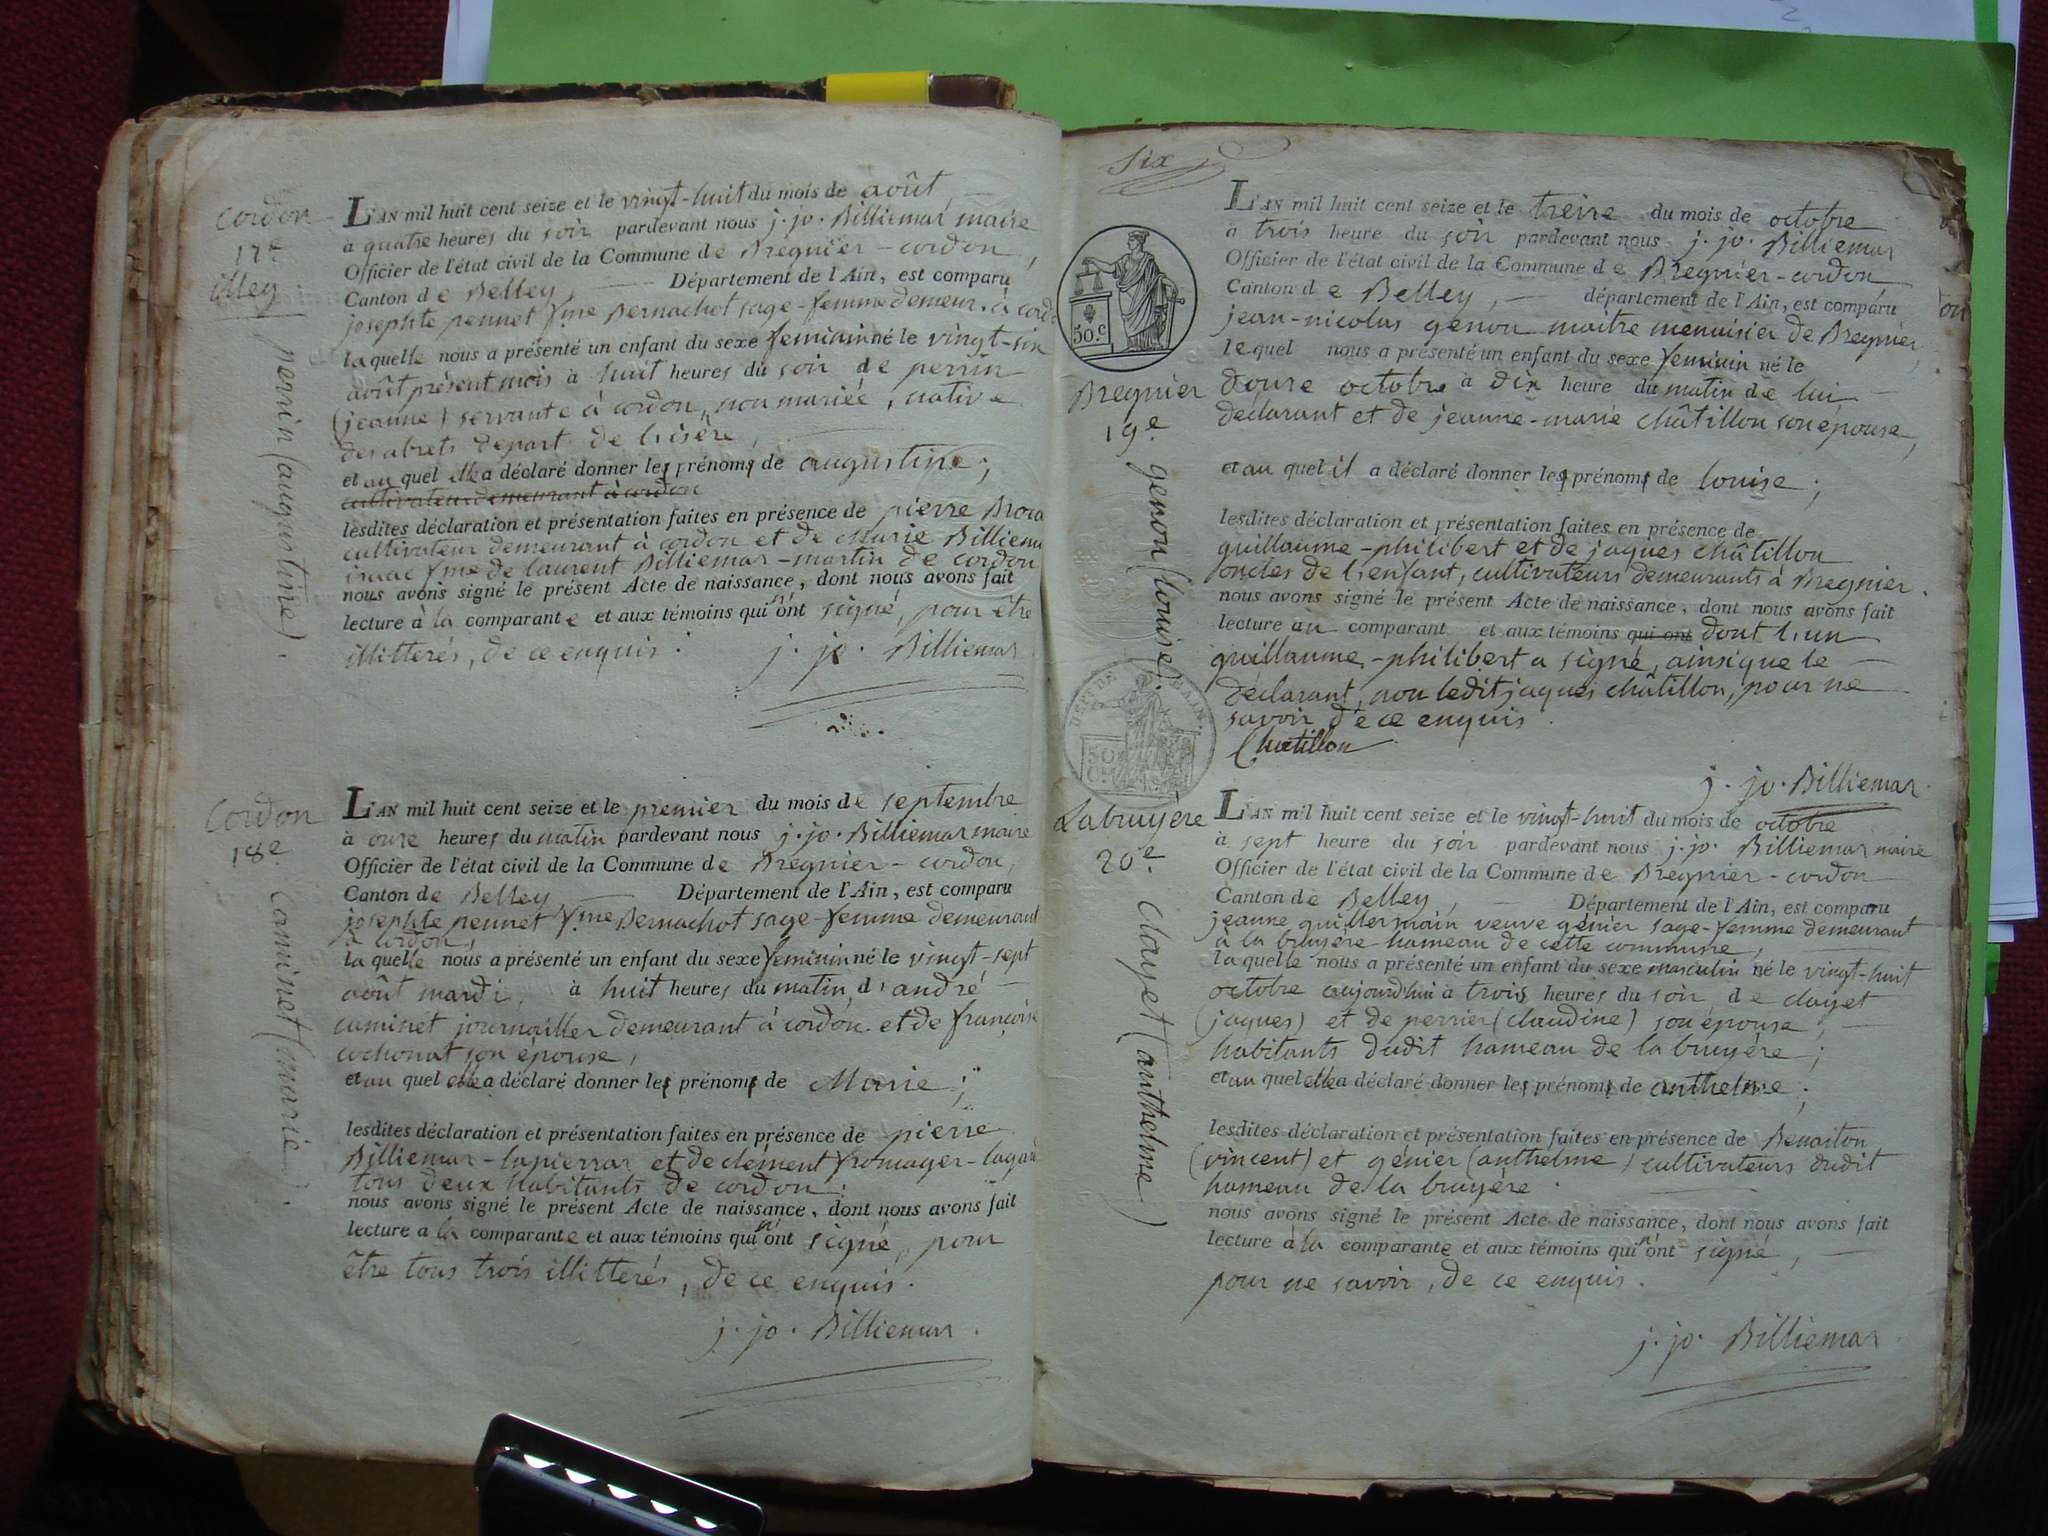 cordon
17e
illeg.
perrin (augustine).
L'AN mil huit cent seize et le vingt-huit du mois de août
à quatre heures du soir pardevant nous j. jo. Billiemar, maire
Officier de l'état civil de la Commune de Bregnier-cordon,
Canton de Belley, Département de l'Ain, est comparu
josephte pennet fme Bernachot sage-femme demeur. à cord
laquelle nous a présenté un enfant du sexe feminin né le vingt-six
août présent mois à huit heures du soir de perrin
(jeanne) servante à cordon, non mariée, native
des abrets depart. de l'isère,
et au quel elle a déclaré donner les prénoms de augustine;
cultivateur demeurant à cordon
lesdites déclaration et présentation faites en présence de pierre
cultivateur demeurant à cordon et de Marie Billiema
fme de laurent Billiemar-martin de cordon
nous avons signé le présent Acte de naissance, dont nous avons fait
lecture à la comparante et aux témoins qui n'ont signé, pour être
illitterés, de ce enquis.
j. jo. Billiemar
Cordon
18e.
caminet (marie).
L'AN mil huit cent seize et le premier du mois de septembre
à onze heures du matin pardevant nous j. jo. Billiemar maire
Officier de l'état civil de la Commune de Bregnier-cordon,
Canton de Belley Département de l'Ain, est comparu
josephte pennet fme Bernachot sage-femme demeurant
à cordon,
laquelle nous a présenté un enfant du sexe feminin né le vingt-sept
août mardi, à huit heures du matin, d'andré
caminet journailler demeurant à cordon et de françoise
cochonat son épouse,
et au quel elle a déclaré donner les prénoms de Marie;
lesdites déclaration et présentation faites en présence de pierre
Billiemar-lapierraz et de clément fromager-
tous deux habitants de cordon.
nous avons signé le présent Acte de naissance, dont nous avons fait
lecture a la comparante et aux témoins qui n'ont signé, pour
être tous trois illitterés, de ce enquis.
j. jo. Billiemar.
Six
50.c
Bregnier
19e.
genon (louise).
L'AN mil huit cent seize et le treize du mois de octobre
à trois heure du soir pardevant nous j. jo. Billiemar
Officier de l'état civil de la Commune de Bregnier-cordon,
Canton de Belley, département de l'Ain, est comparu
jean-nicolas genon maitre menuisier de Bregnier,
lequel nous a présenté un enfant du sexe feminin né le
douze octobre à dix heure du matin de lui
déclarant et de jeanne-marie châtillon son épouse,
et au quel il a déclaré donner les prénoms de louise;
lesdites déclaration et présentation faites en présence de
guillaume-philibert et de jaques châtillon
oncles de l'enfant, cultivateurs demeurants à Bregnier.
nous avons signé le présent Acte de naissance, dont nous avons fait
lecture au comparant et aux témoins qui ont dont l'un
guillaume-philibert a signé, ainsi que le
déclarant, non ledit jaques châtillon, pour ne
savoir de ce enquis.
Chatillon
j. jo. Billiemar
Labruyère
20e.
clayet (anthelme)
L'AN mil huit cent seize et le vingt-huit du mois de octobre
à sept heure du soir pardevant nous j. jo. Billiemar maire
Officier de l'état civil de la Commune de Bregnier-cordon
Canton de Belley, Département de l'Ain, est comparu
jeanne guillermain veuve génier sage-femme demeurant
à la bruyère hameau de cette commune,
laquelle nous a présenté un enfant du sexe masculin né le vingt-huit
octobre aujourd'hui à trois heures du soir, de clayet
(jaques) et de perrier (claudine) son épouse,
habitants dudit hameau de la bruyère;
et au quel elle a déclaré donner les prénoms de anthelme;
lesdites déclaration et présentation faites en présence de Benaiton
(vincent) et génier (anthelme) cultivateurs dudit
hameau de la bruyère.
nous avons signé le présent Acte de naissance, dont nous avons fait
lecture à la comparante et aux témoins qui n'ont signé,
pour ne savoir, de ce enquis.
j. jo. Billiemar